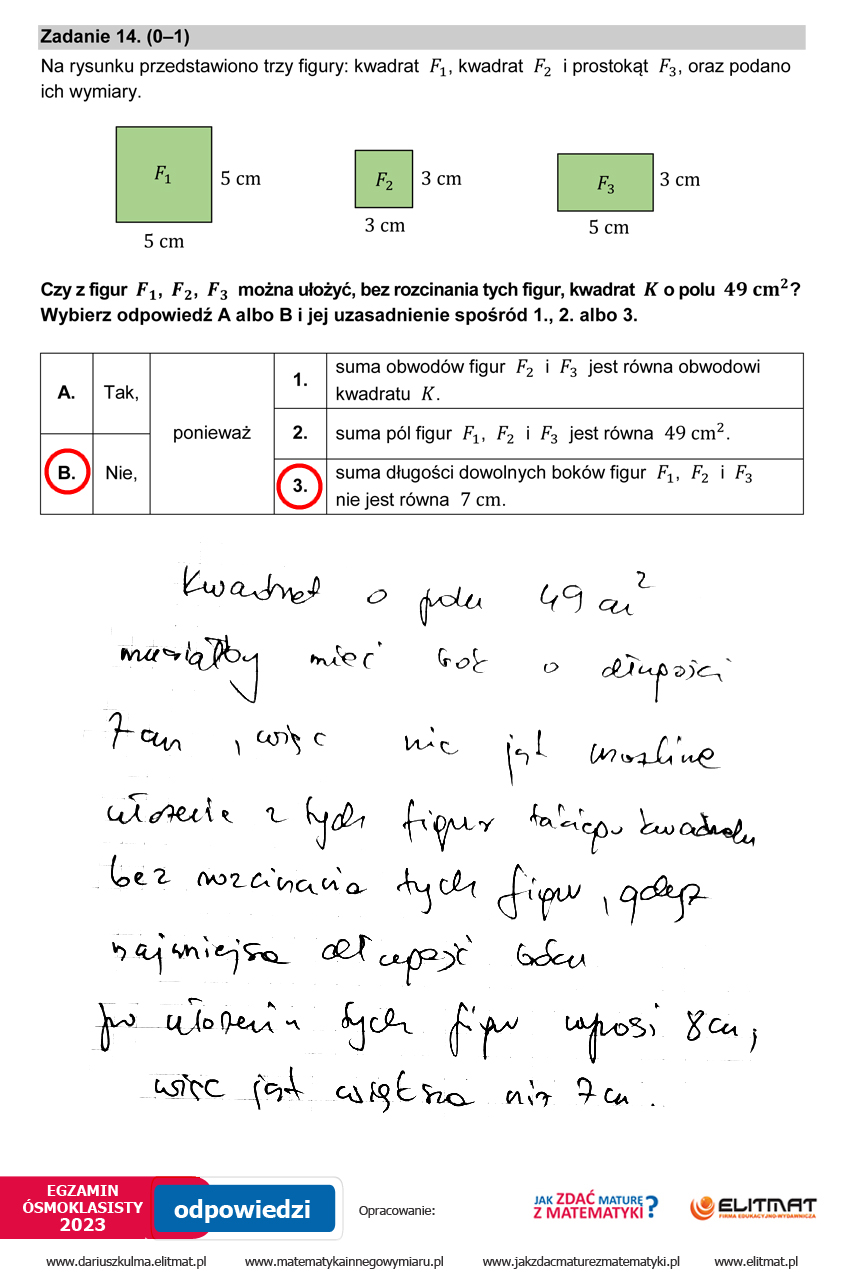 Zadanie 14. (0–1)
Na rysunku przedstawiono trzy figury: kwadrat F₁, kwadrat F₂ i prostokąt F₃, oraz podano
ich wymiary.
F₁ 5 cm F₂ 3 cm F₃ 3 cm
5 cm 3 cm 5 cm
Czy z figur F₁, F₂, F₃ można ułożyć, bez rozcinania tych figur, kwadrat K o polu 49 cm²?
Wybierz odpowiedź A albo B i jej uzasadnienie spośród 1., 2. albo 3.
A. Tak,
B. Nie,
ponieważ
1. suma obwodów figur F₂ i F₃ jest równa obwodowi
kwadratu K.
2. suma pól figur F₁, F₂ i F₃ jest równa 49 cm².
3. suma długości dowolnych boków figur F₁, F₂ i F₃
nie jest równa 7 cm.
Kwadrat o polu 49 cm²
musiałby mieć bok o długości
7 cm, więc nie jest możliwe
ułożenie z tych figur takiego kwadratu
bez rozcinania tych figur, gdyż
najmniejsza długość boku
po ułożeniu tych figur wynosi 8 cm,
więc jest większa niż 7 cm.
EGZAMIN
ÓSMOKLASISTY
2023
odpowiedzi
Opracowanie:
JAK ZDAĆ MATURĘ
Z MATEMATYKI?
ELITMAT
FIRMA EDUKACYJNO-WYDAWNICZA
www.dariuszkulma.elitmat.pl www.matematykainnegowymiaru.pl www.jakzdacmaturezmatematyki.pl www.elitmat.pl